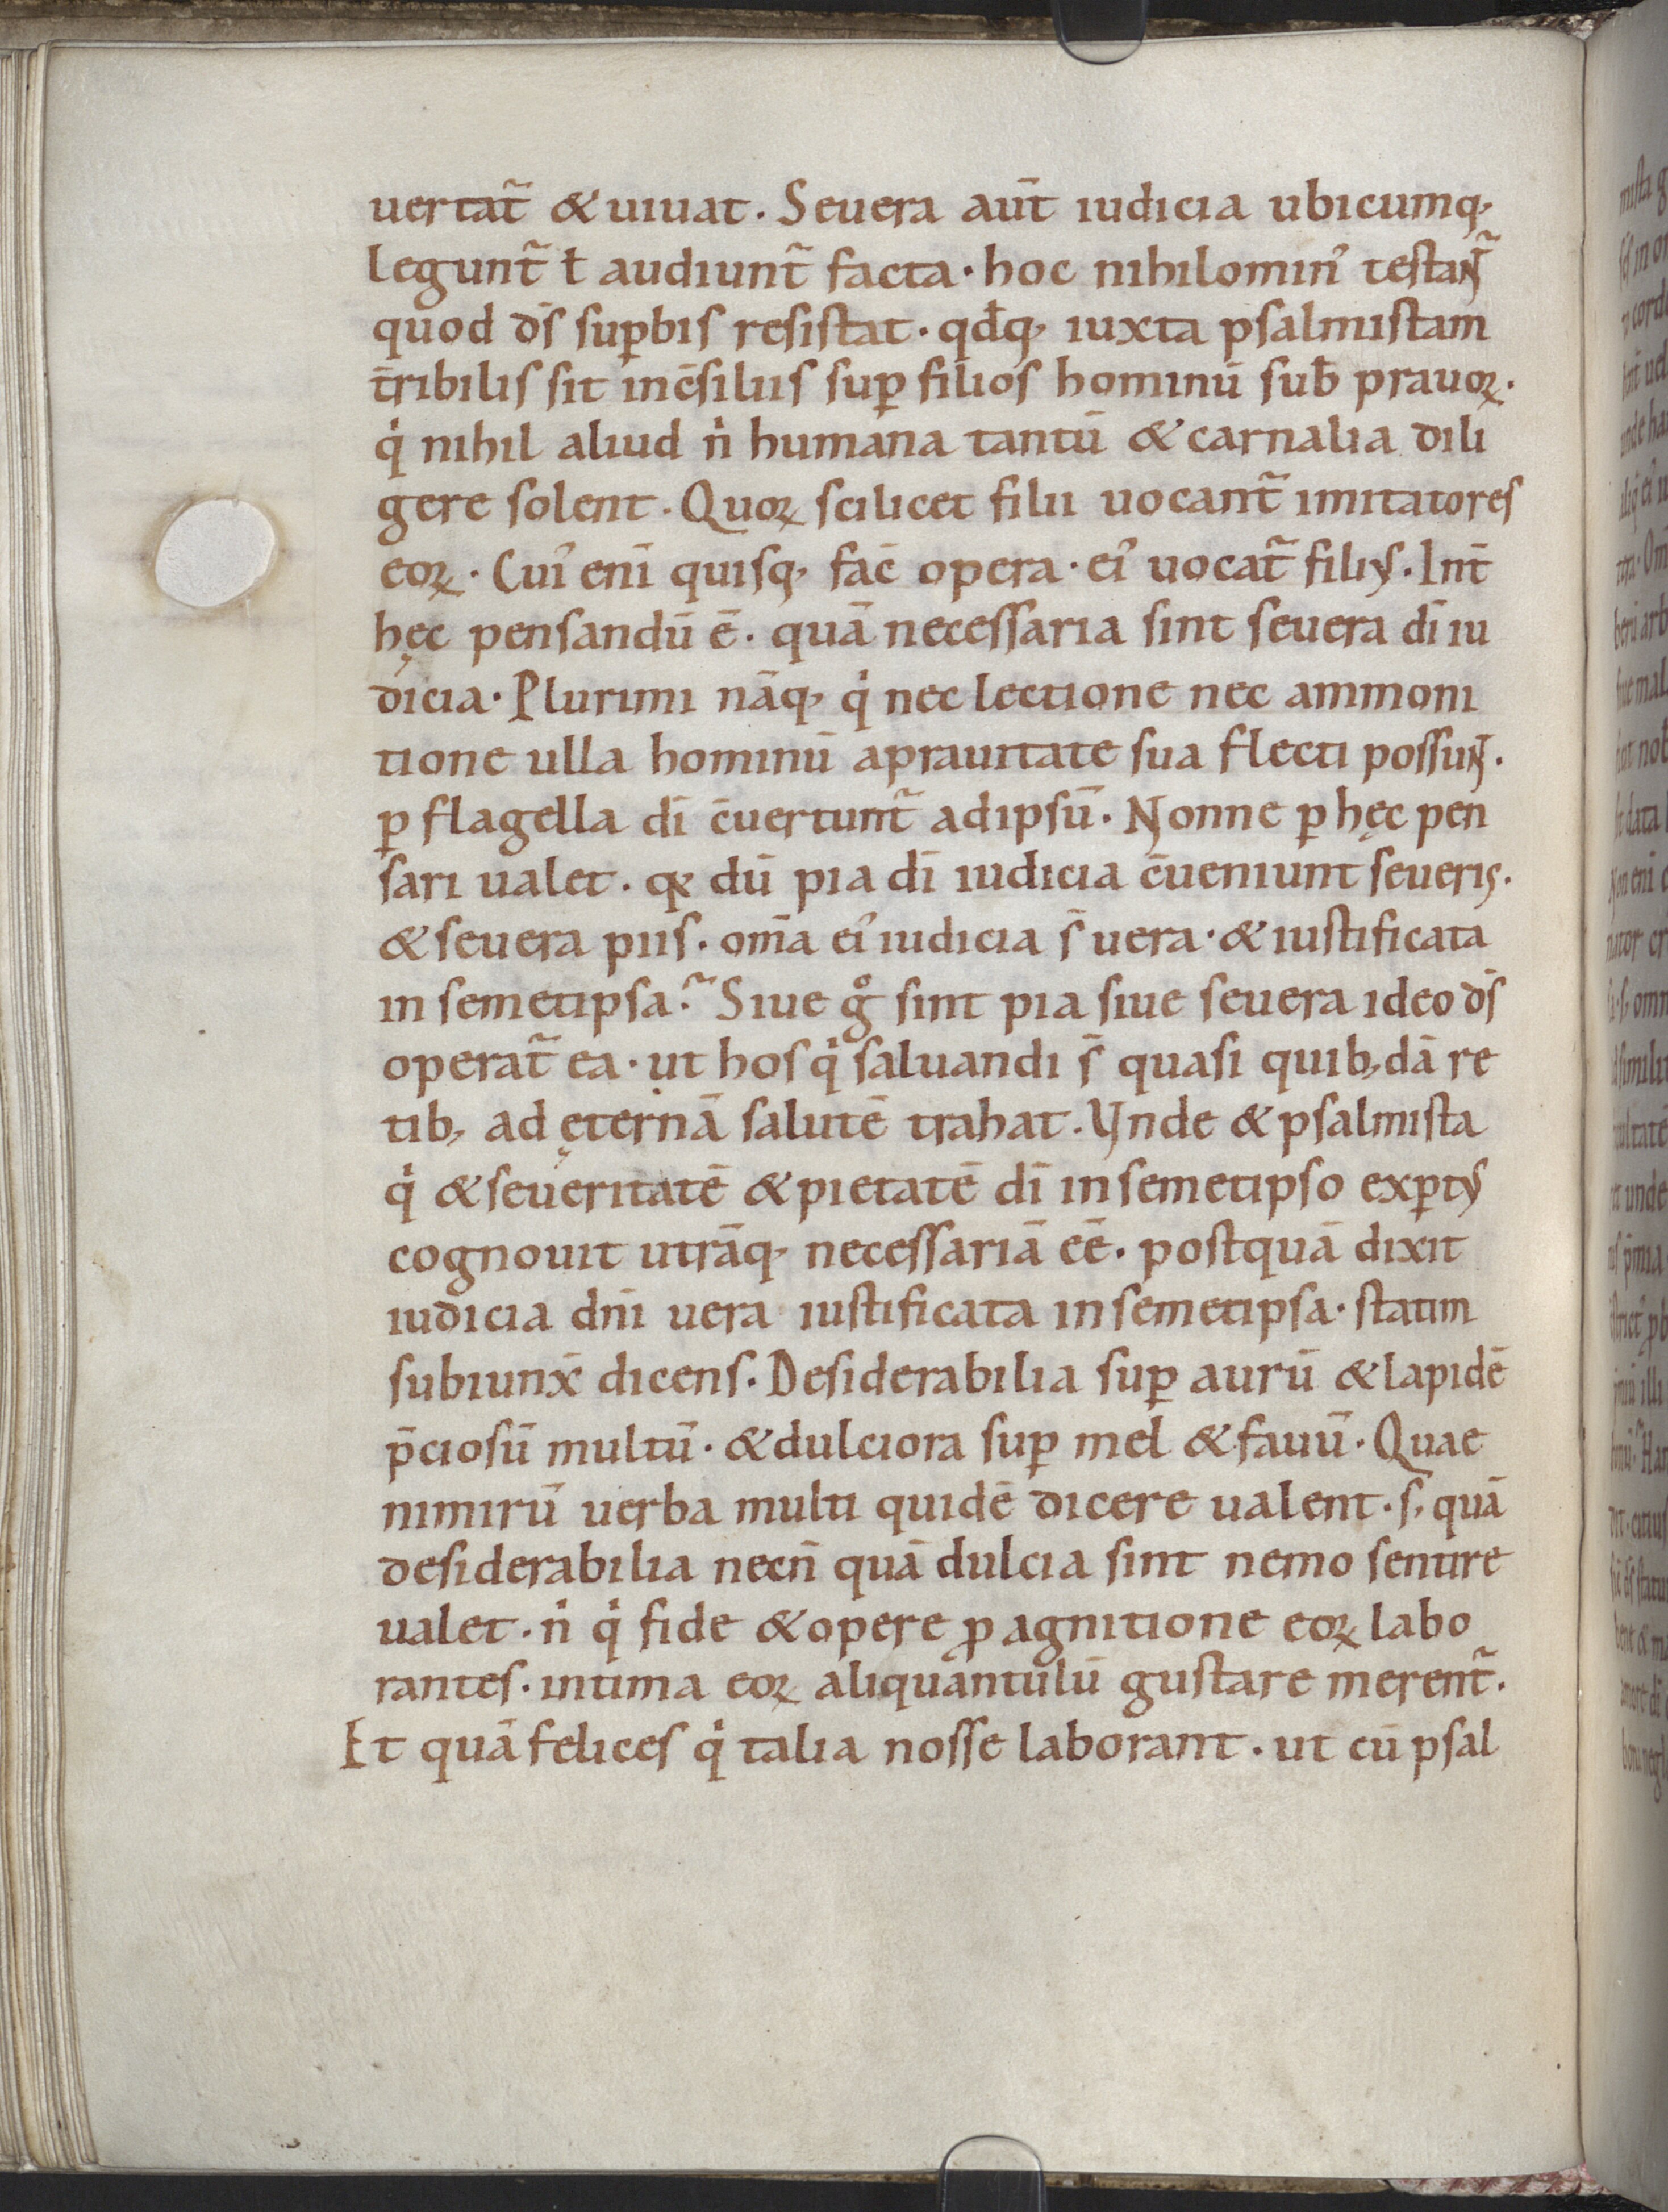 uertat̃ & uiuat. Seuera aut̄ iudicia ubicumq;
legunt̃ ł audiunt̃ facta· hoc nihilomin᾿ testañt
quod d̄s sup̱bis resistat· qđq; iuxta psalmistam
t̄ribilis sit in c̄siliis sup̱ filios hominū sub̄ prauoꝝ.
q̇ nihil aliud ṅ humana tantū & carnalia dili
gere solent. Quoꝝ scilicet filii uocant̃ imitatores
eoꝝ. Cui᾿ eni̅ quisq; fac̄ opera· ei᾿ uocat̃ filius. Int̄
hęc pensandū ē. quā necessaria sint seuera dī iu
dicia· Plurimi nāq; q̇ nec lectione nec ammoni
tione ulla hominū aprauitate sua flecti possunt.
ꝑ flagella dī c̄uertunt̃ adipsū. Nonne ꝑ hęc pen
sari ualet. qꝛ dū pia dī iudicia c̄ueniunt seueris.
& seuera piis. om̄a ei᾿ iudicia s̄ uera· & iustificata
in semetipsa? Siue g̊ sint pia siue seuera ideo d̄s
operat̃ ea· ut hos q̇ saluandi s̄ quasi quib; dā re
tib; ad ęternā salutē trahat. Unde & psalmista
q̇ & seueritatē & pietatē dī in semetipso exꝑtus
cognouit utrāq; necessariā eē. postquā dixit
iudicia dn̄i uera iustificata in semetipsa· statim
subiunx̄ dicens. Desiderabilia suꝑ aurū & lapidē
p̄ciosū multū. & dulciora suꝑ mel & fauū. Quae
nimirū uerba multi quidē dicere ualent. s; quā
desiderabilia necn̄ quā dulcia sint nemo sentire
ualet. ṅ q̇ fide & opere ꝓ agnitione eoꝝ labo
rantes. intima eoꝝ aliquantulū gustare merent̃.
Et quā felices q̇ talia nosse laborant. ut cū psal